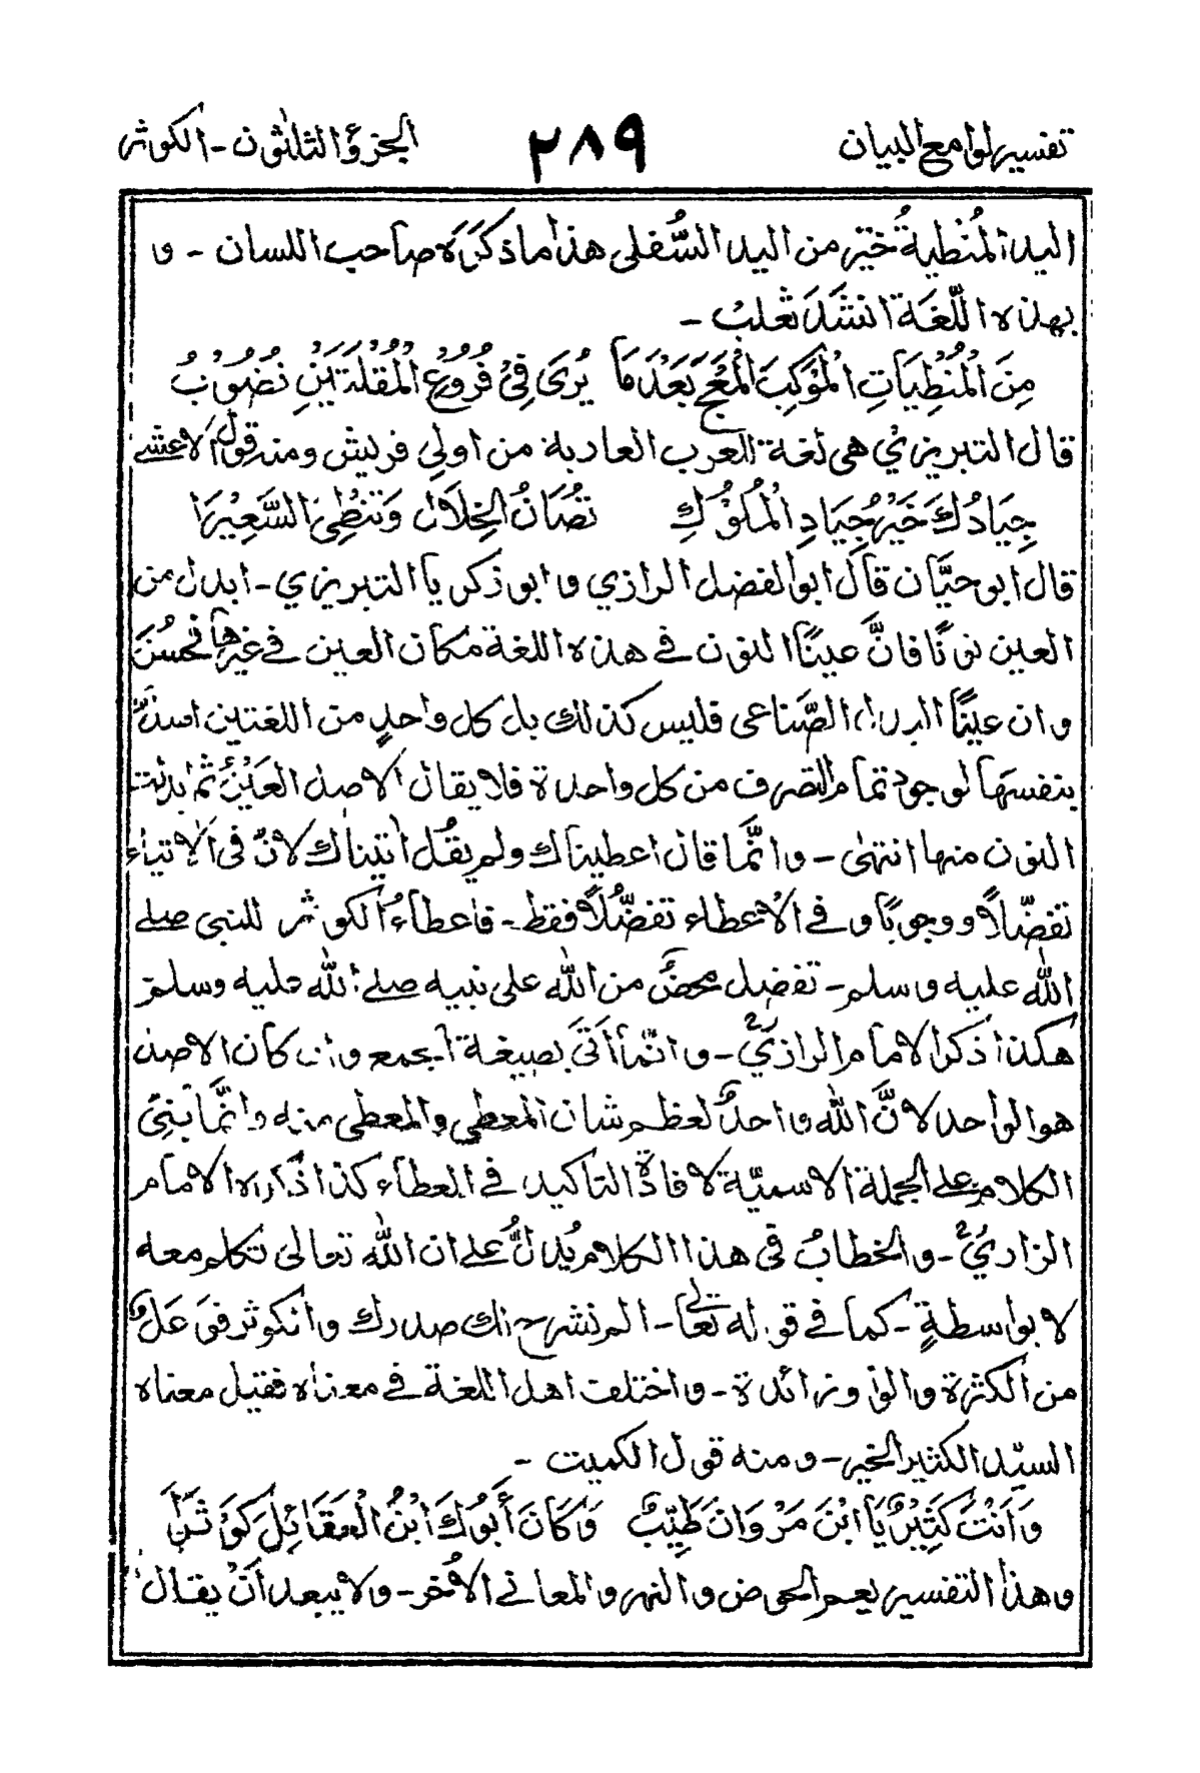 تفسير لوامع البيان ٢٨٩ الجزء الثلاثون - الكوثر
اليد المُنطيةُ خيْر من اليد السُّفلى هذا ما ذكرَه صاحب اللسان - و
بهذه اللّغة انشَدَ ثعلبُ -
مِنَ الْمُنْطِيَاتِ الْمَوْكِبَ الْمَعْجَ بَعْدَ مَا يُرَى فِيْ فُرُوْعِ الْمُقْلَتَيْنِ نُضُوْبُ
قال التبريزيُ هى لغة العرب العاربة من اولي قريش ومنه قول الاعشے
جِيَادُكَ خَيْرُ جِيَادِ الْمُلُوْكِ تُصَانُ الْجِلَالَ وَتُنْطٰى السَّعِيْرَا
قال ابو حيَّان قال ابو الفضل الرازي و ابو زكريا التبريزي - ابدل من
العين نونًا فانَّ عينًا النون فے هذه اللغة مكان العين فے غيرها فحسُنَ
و ان عينًا البدل الصّناعى فليس كذلك بل كل واحدٍ من اللغتين اصلٌ
بنفسها لوجود تمام التصرف من كل واحدة فلا يقال الاصل العَيْنُ ثم ابدلت
النون منها انتهٰى - و انَّما قال اعطيناك ولم يقُل اٰتيناك لانّ فى الايتاء
تفضّلاً و وجوبًا و فے الاعطاء تفضّلاً فقط - فاعطاءُ الكوثر للنبى صلے
اللّٰه عليه وسلم - تفضل محضٌ من اللّٰه على نبيه صلے اللّٰه عليه وسلم
هكذا ذكر الامام الرازيؒ - و انّما اَتَى بصيغة الجمع و ان كان الاصل
هو الواحد لانَّ اللّٰه واحدٌ لعظم شان المعطي والمعطى منه و انَّما بَنىَ
الكلام على الجملة الاسميّة لافادة التاكيد فے العطاء كذا ذكره الامام
الرازيؒ - والخطابُ فى هذا الكلام يُدلُّ علے ان اللّٰه تعالىٰ تكلم معه
لا بواسطةٍ - كما فے قوله تعالىٰ - الم نشرح لك صدرك و الكوثر فوعلٌ
من الكثرة والواو زائدة - و اختلف اهل اللغة فے معناه فقيل معناه
السيّد الكثير الخير - و منه قول الكميت -
وَ اَنْتَ كَثِيْرٌ يَا ابْنَ مَرْوَانَ طَيِّبٌ وَ كَانَ أَبُوْكَ ابْنُ الْعَقَائِلِ كَوْثَرَا
و هذا التفسير يعم الحوض و النهر و المعانے الاُخر - و لا يبعد ان يقال